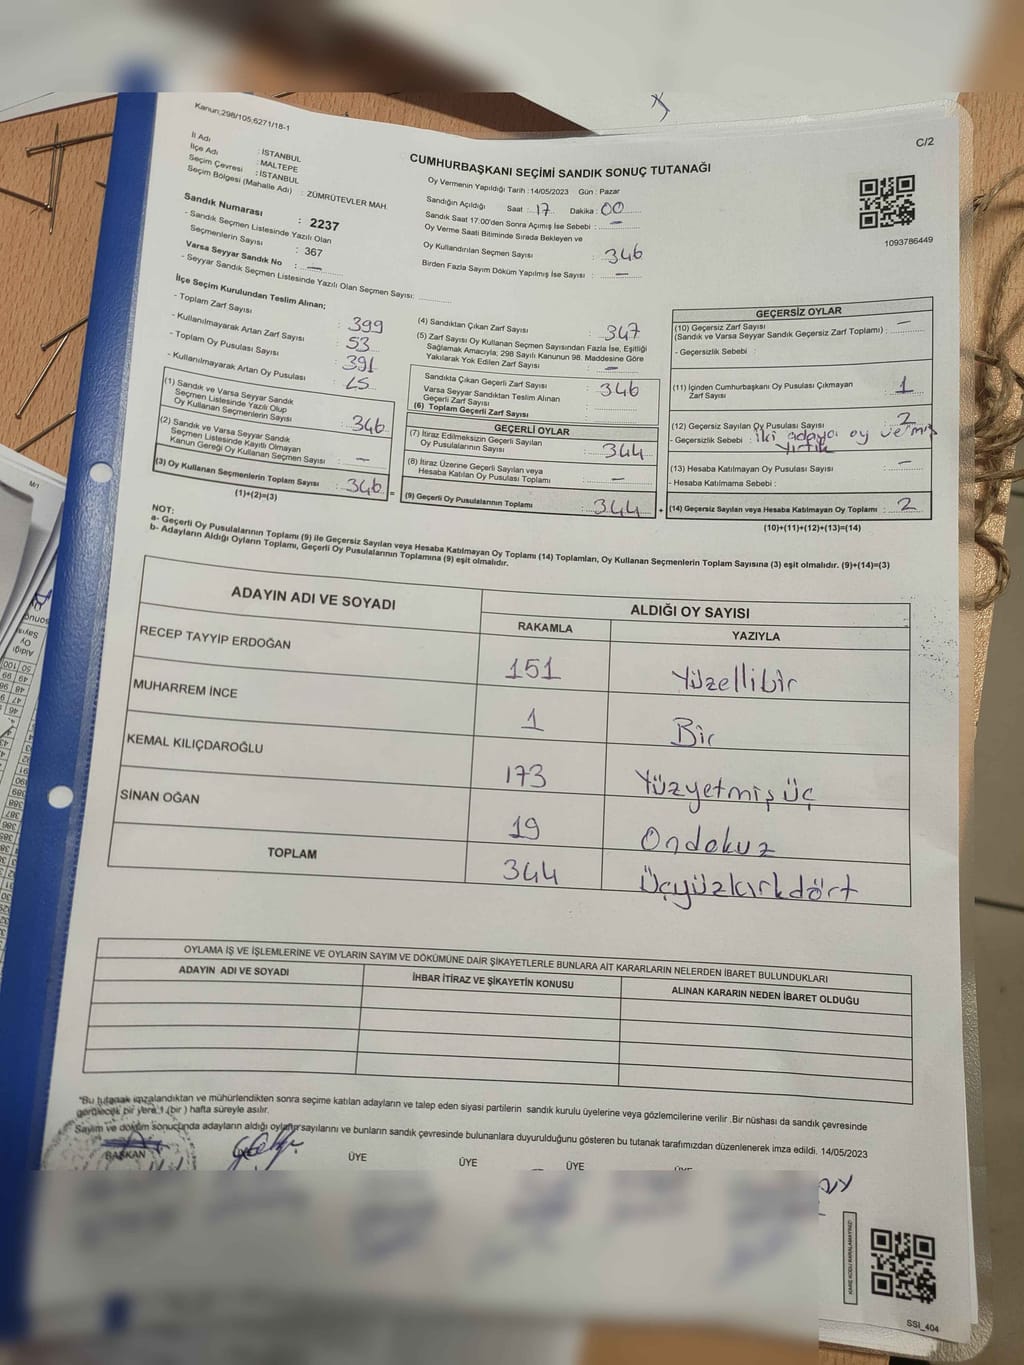 Kanun:298/105,6271/18-1
C/2
İl Adı : İSTANBUL
İlçe Adı : MALTEPE
Seçim Çevresi : İSTANBUL
Seçim Bölgesi (Mahalle Adı) : ZÜMRÜTEVLER MAH.
Sandık Numarası : 2237
- Sandık Seçmen Listesinde Yazılı Olan
Seçmenlerin Sayısı : 367
Varsa Seyyar Sandık No : —
- Seyyar Sandık Seçmen Listesinde Yazılı Olan Seçmen Sayısı: ............
CUMHURBAŞKANI SEÇİMİ SANDIK SONUÇ TUTANAĞI
Oy Vermenin Yapıldığı Tarih : 14/05/2023 Gün : Pazar
Sandığın Açıldığı Saat : 17 Dakika : 00
Sandık Saat 17:00'den Sonra Açımış İse Sebebi : —
Oy Verme Saati Bitiminde Sırada Bekleyen ve
Oy Kullandırılan Seçmen Sayısı : 346
Birden Fazla Sayım Döküm Yapılmış İse Sayısı : —
1093786449
İlçe Seçim Kurulundan Teslim Alınan;
- Toplam Zarf Sayısı : 399
- Kullanılmayarak Artan Zarf Sayısı : 53
- Toplam Oy Pusulası Sayısı : 391
- Kullanılmayarak Artan Oy Pusulası : 45
(1) Sandık ve Varsa Seyyar Sandık
Seçmen Listesinde Yazılı Olup
Oy Kullanan Seçmenlerin Sayısı : 346
(2) Sandık ve Varsa Seyyar Sandık
Seçmen Listesinde Kayıtlı Olmayan
Kanun Gereği Oy Kullanan Seçmen Sayısı : —
(3) Oy Kullanan Seçmenlerin Toplam Sayısı : 346 =
(1)+(2)=(3)
(4) Sandıktan Çıkan Zarf Sayısı : 347
(5) Zarf Sayısı Oy Kullanan Seçmen Sayısından Fazla İse, Eşitliği
Sağlamak Amacıyla; 298 Sayılı Kanunun 98. Maddesine Göre
Yakılarak Yok Edilen Zarf Sayısı : —
Sandıkta Çıkan Geçerli Zarf Sayısı : 346
Varsa Seyyar Sandıktan Teslim Alınan
Geçerli Zarf Sayısı :
(6) Toplam Geçerli Zarf Sayısı :
GEÇERLİ OYLAR
(7) İtiraz Edilmeksizin Geçerli Sayılan
Oy Pusulasının Sayısı : 344
(8) İtiraz Üzerine Geçerli Sayılan veya
Hesaba Katılan Oy Pusulası Toplamı : —
(9) Geçerli Oy Pusulalarının Toplamı : 344 +
GEÇERSİZ OYLAR
(10) Geçersiz Zarf Sayısı
(Sandık ve Varsa Seyyar Sandık Geçersiz Zarf Toplamı) : —
- Geçersizlik Sebebi :
(11) İçinden Cumhurbaşkanı Oy Pusulası Çıkmayan
Zarf Sayısı : 1
(12) Geçersiz Sayılan Oy Pusulası Sayısı : 2
- Geçersizlik Sebebi : İki adaya oy vermiş
yırtık
(13) Hesaba Katılmayan Oy Pusulası Sayısı : —
- Hesaba Katılmama Sebebi :
(14) Geçersiz Sayılan veya Hesaba Katılmayan Oy Toplamı : 2
(10)+(11)+(12)+(13)=(14)
NOT:
a- Geçerli Oy Pusulalarının Toplamı (9) ile Geçersiz Sayılan veya Hesaba Katılmayan Oy Toplamı (14) Toplamları, Oy Kullanan Seçmenlerin Toplam Sayısına (3) eşit olmalıdır. (9)+(14)=(3)
b- Adayların Aldığı Oyların Toplamı, Geçerli Oy Pusulalarının Toplamına (9) eşit olmalıdır.
ADAYIN ADI VE SOYADI ALDIĞI OY SAYISI
RAKAMLA YAZIYLA
RECEP TAYYİP ERDOĞAN 151 Yüzellibir
MUHARREM İNCE 1 Bir
KEMAL KILIÇDAROĞLU 173 Yüzyetmişüç
SİNAN OĞAN 19 Ondokuz
TOPLAM 344 Üçyüzkırkdört
OYLAMA İŞ VE İŞLEMLERİNE VE OYLARIN SAYIM VE DÖKÜMÜNE DAİR ŞİKAYETLERLE BUNLARA AİT KARARLARIN NELERDEN İBARET BULUNDUKLARI
ADAYIN ADI VE SOYADI İHBAR İTİRAZ VE ŞİKAYETİN KONUSU ALINAN KARARIN NEDEN İBARET OLDUĞU
"Bu tutanak imzalandıktan ve mühürlendikten sonra seçime katılan adayların ve talep eden siyasi partilerin sandık kurulu üyelerine veya gözlemcilerine verilir .Bir nüshası da sandık çevresinde
görülecek bir yere 1 (bir ) hafta süreyle asılır.
Sayım ve döküm sonucunda adayların aldığı oyların sayılarını ve bunların sandık çevresinde bulunanlara duyurulduğunu gösteren bu tutanak tarafımızdan düzenlenerek imza edildi. 14/05/2023
BAŞKAN ÜYE ÜYE ÜYE ÜYE
KARE KODU KARALAMAYINIZ!
SSI_404